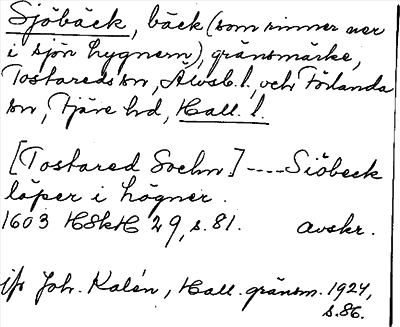 Sjöbäck, bäck (som rinner ner
i sjön Lygnern), gränsmärke,
Tostareds sn, Älvsb. l., och Förlanda
sn, Fjäre hd, Hall. l.
[Tostared Sochn] ---- Siöbeck
löper i Lögner.
1603 HSkH 29, s. 81. avskr.
jfr Joh. Kalén, Hall. gränsm. 1924,
s. 86.